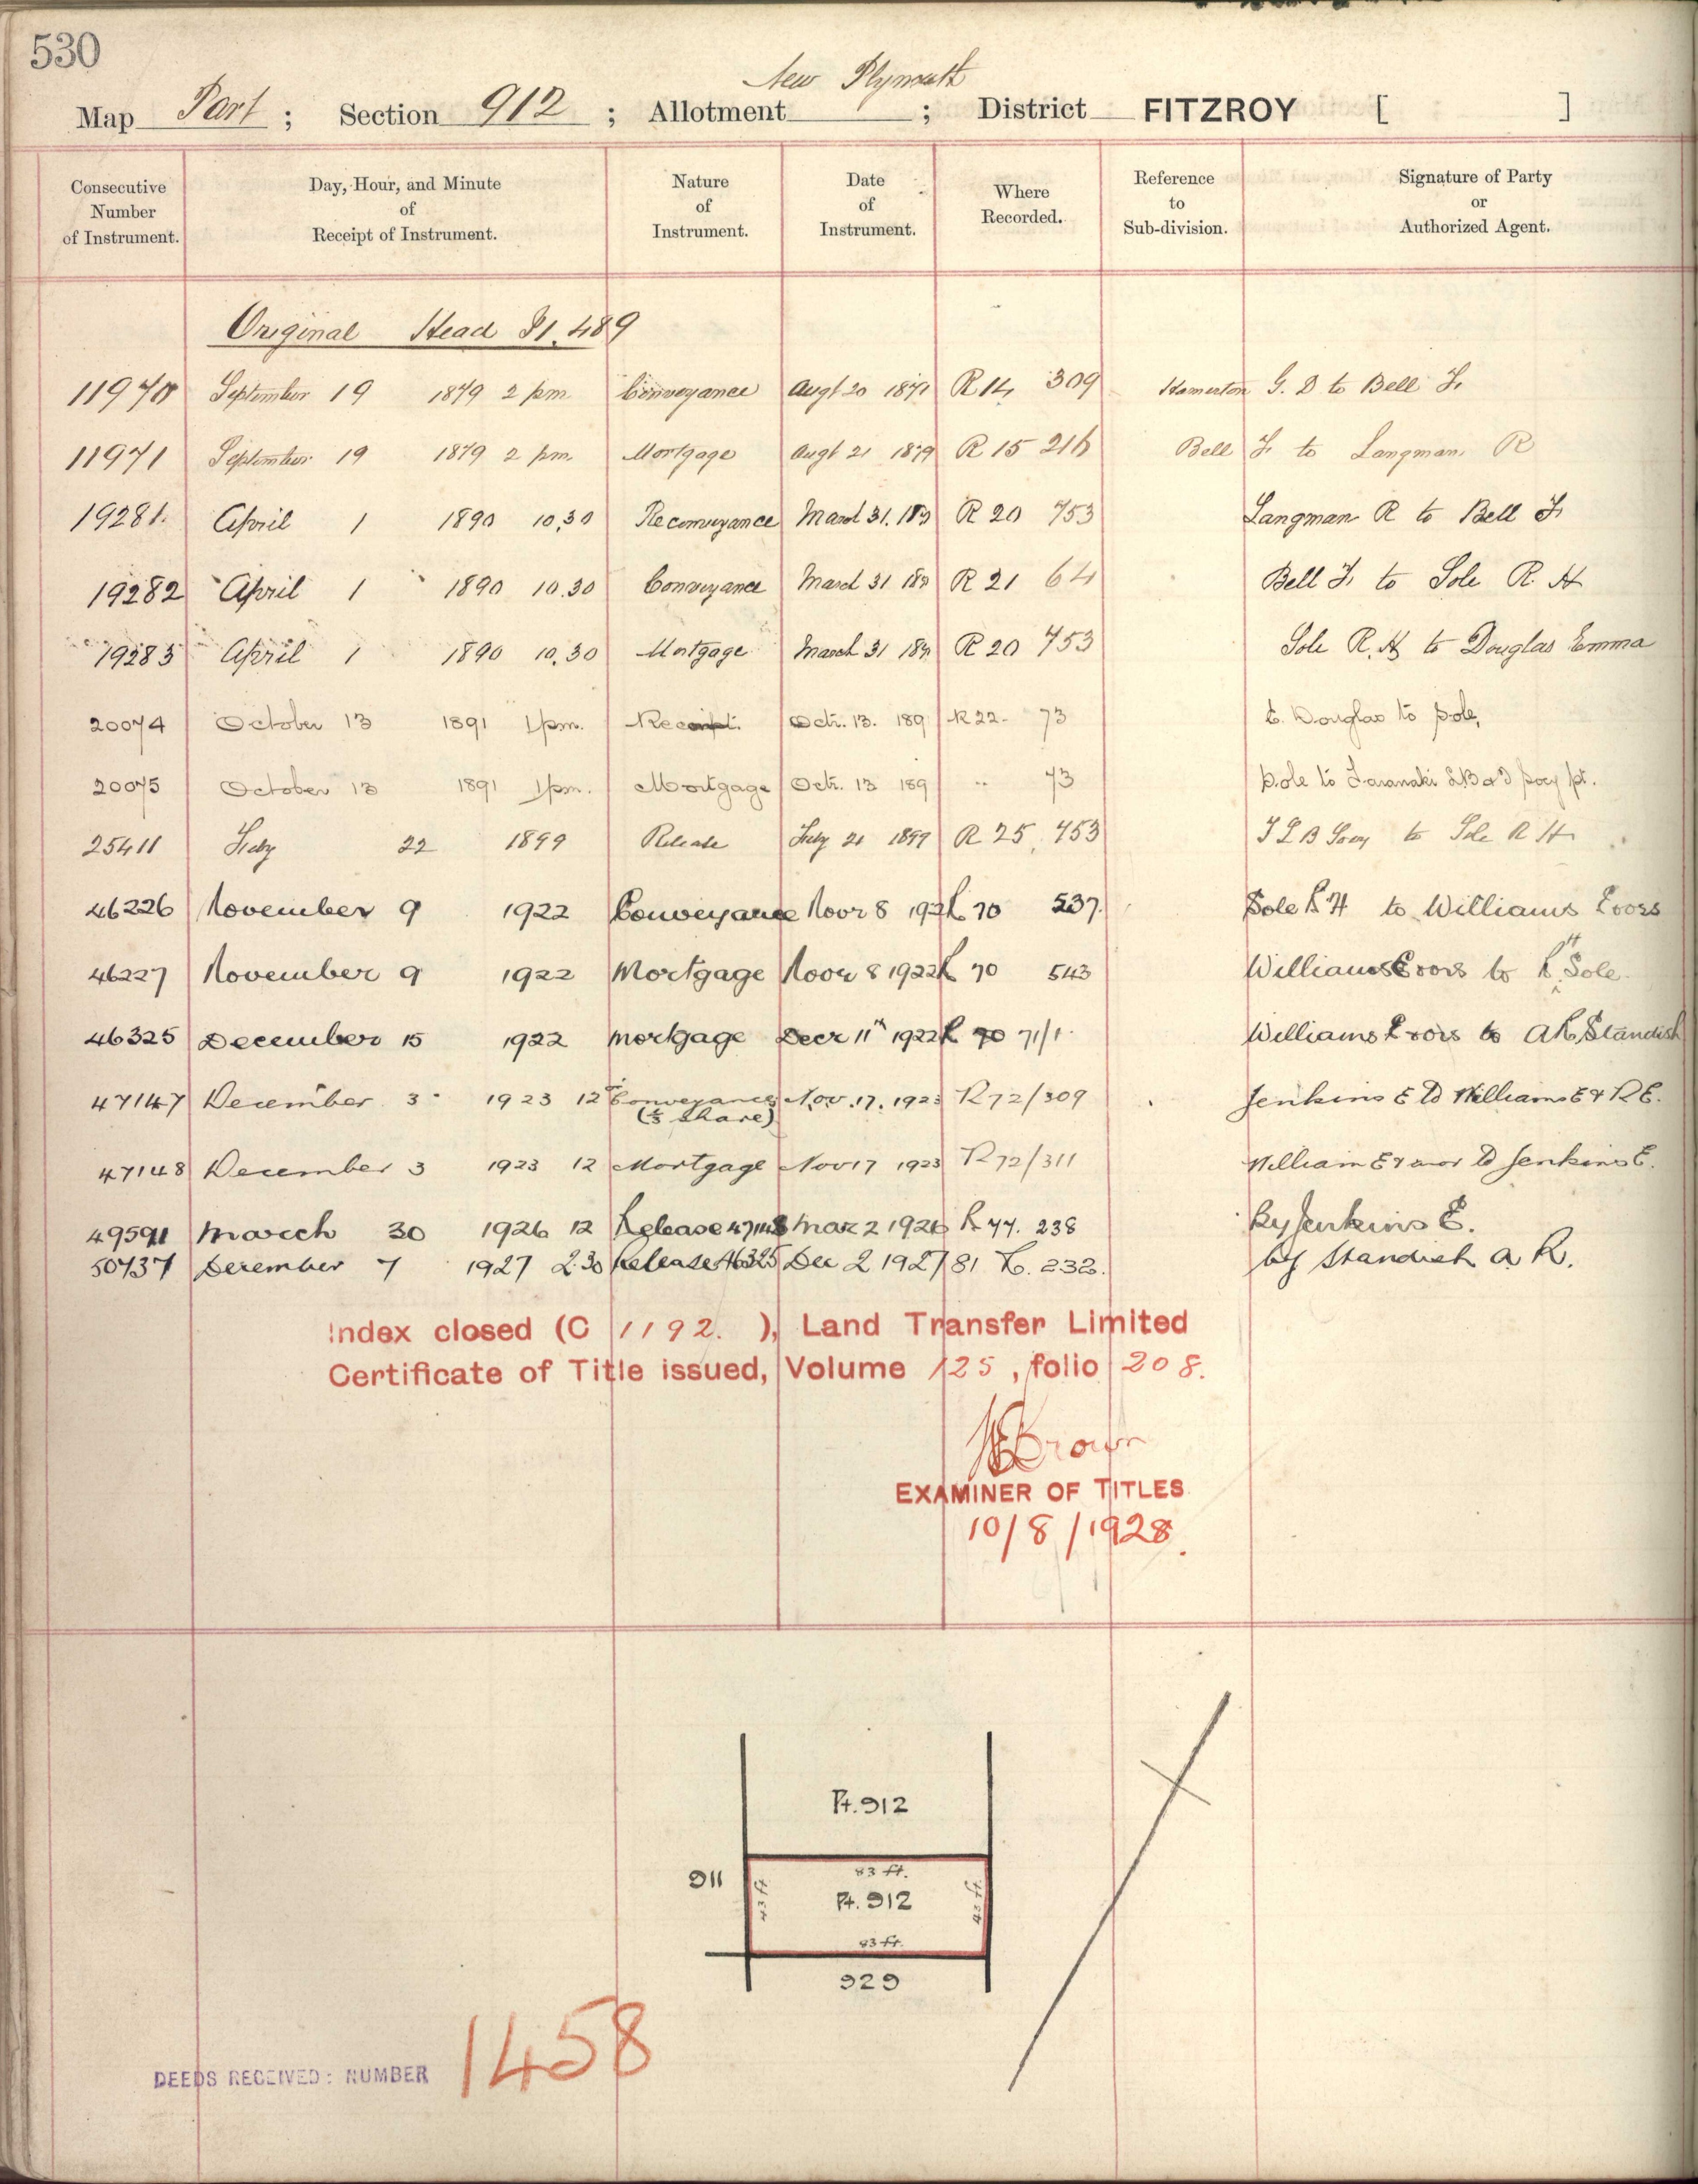 530
New Plymouth
Map Part ; Section 912 ; Allotment ; District FITZROY [ ]
Consecutive Number of Instrument. Day, Hour, and Minute of Receipt of Instrument. Nature of Instrument. Date of Instrument. Where Recorded. Reference to Sub-division. Signature of Party or Authorized Agent.
Original Head I1. 489
11970 September 19 1879 2 pm Conveyance Augt 20 1879 R14 309 Hamerton G. D to Bell F.
11971 September 19 1879 2 pm Mortgage Augt 21 1879 R 15 216 Bell F. to Langman R
19281. April 1 1890 10.30 Reconveyance March 31. R 20 753 Langman R to Bell F.
19282 April 1 1890 10.30 Conveyance March 31 R 21 64 Bell F. to Sole R. H
19283 April 1 1890 10.30 Mortgage March 31 R 20 753 Sole R. H to Douglas Emma
20074 October 13 1891 1 pm. Octr. 13. 189 R 22. 73 E. Douglas to Sole,
20075 October 13 1891 1 pm. Mortgage Octr. 13 189 " 73 Sole to Taranaki
25411 July 22 1899 Release July 21 1899 R 25. 753 to Sole R H
46226 November 9 1922 Conveyance Novr 8 192 R 70 537. Sole R H to Williams & ors
46227 November 9 1922 Mortgage Novr 8 1922 R 70 543 Williams & ors to R H Sole
46325 December 15 1922 mortgage Decr 11th 1922 R 70 71/1. Williams & ors to A R Standish
47147 December 3 1923 12 Conveyance (⅓ Share) Nov. 17. 1923 R72/309 Jenkins E to Williams E & R E.
47148 December 3 1923 12 Mortgage Nov 17 1923 R72/311 William E & anor to Jenkins E.
49591 march 30 1926 12 Release 47148 mar 2 1926 R 77. 238 By Jenkins E.
50737 December 7 1927 2.30 Release 46325 Dec 2 1927 81 R. 232. by Standish A R.
Index closed (C 1192. ), Land Transfer Limited
Certificate of Title issued, Volume 125, folio 208.
Brown
EXAMINER OF TITLES
10/8/1928.
Pt. 912
83 ft.
911
43 ft
Pt. 912
43 ft.
83 ft.
929
DEEDS RECEIVED: NUMBER 1458